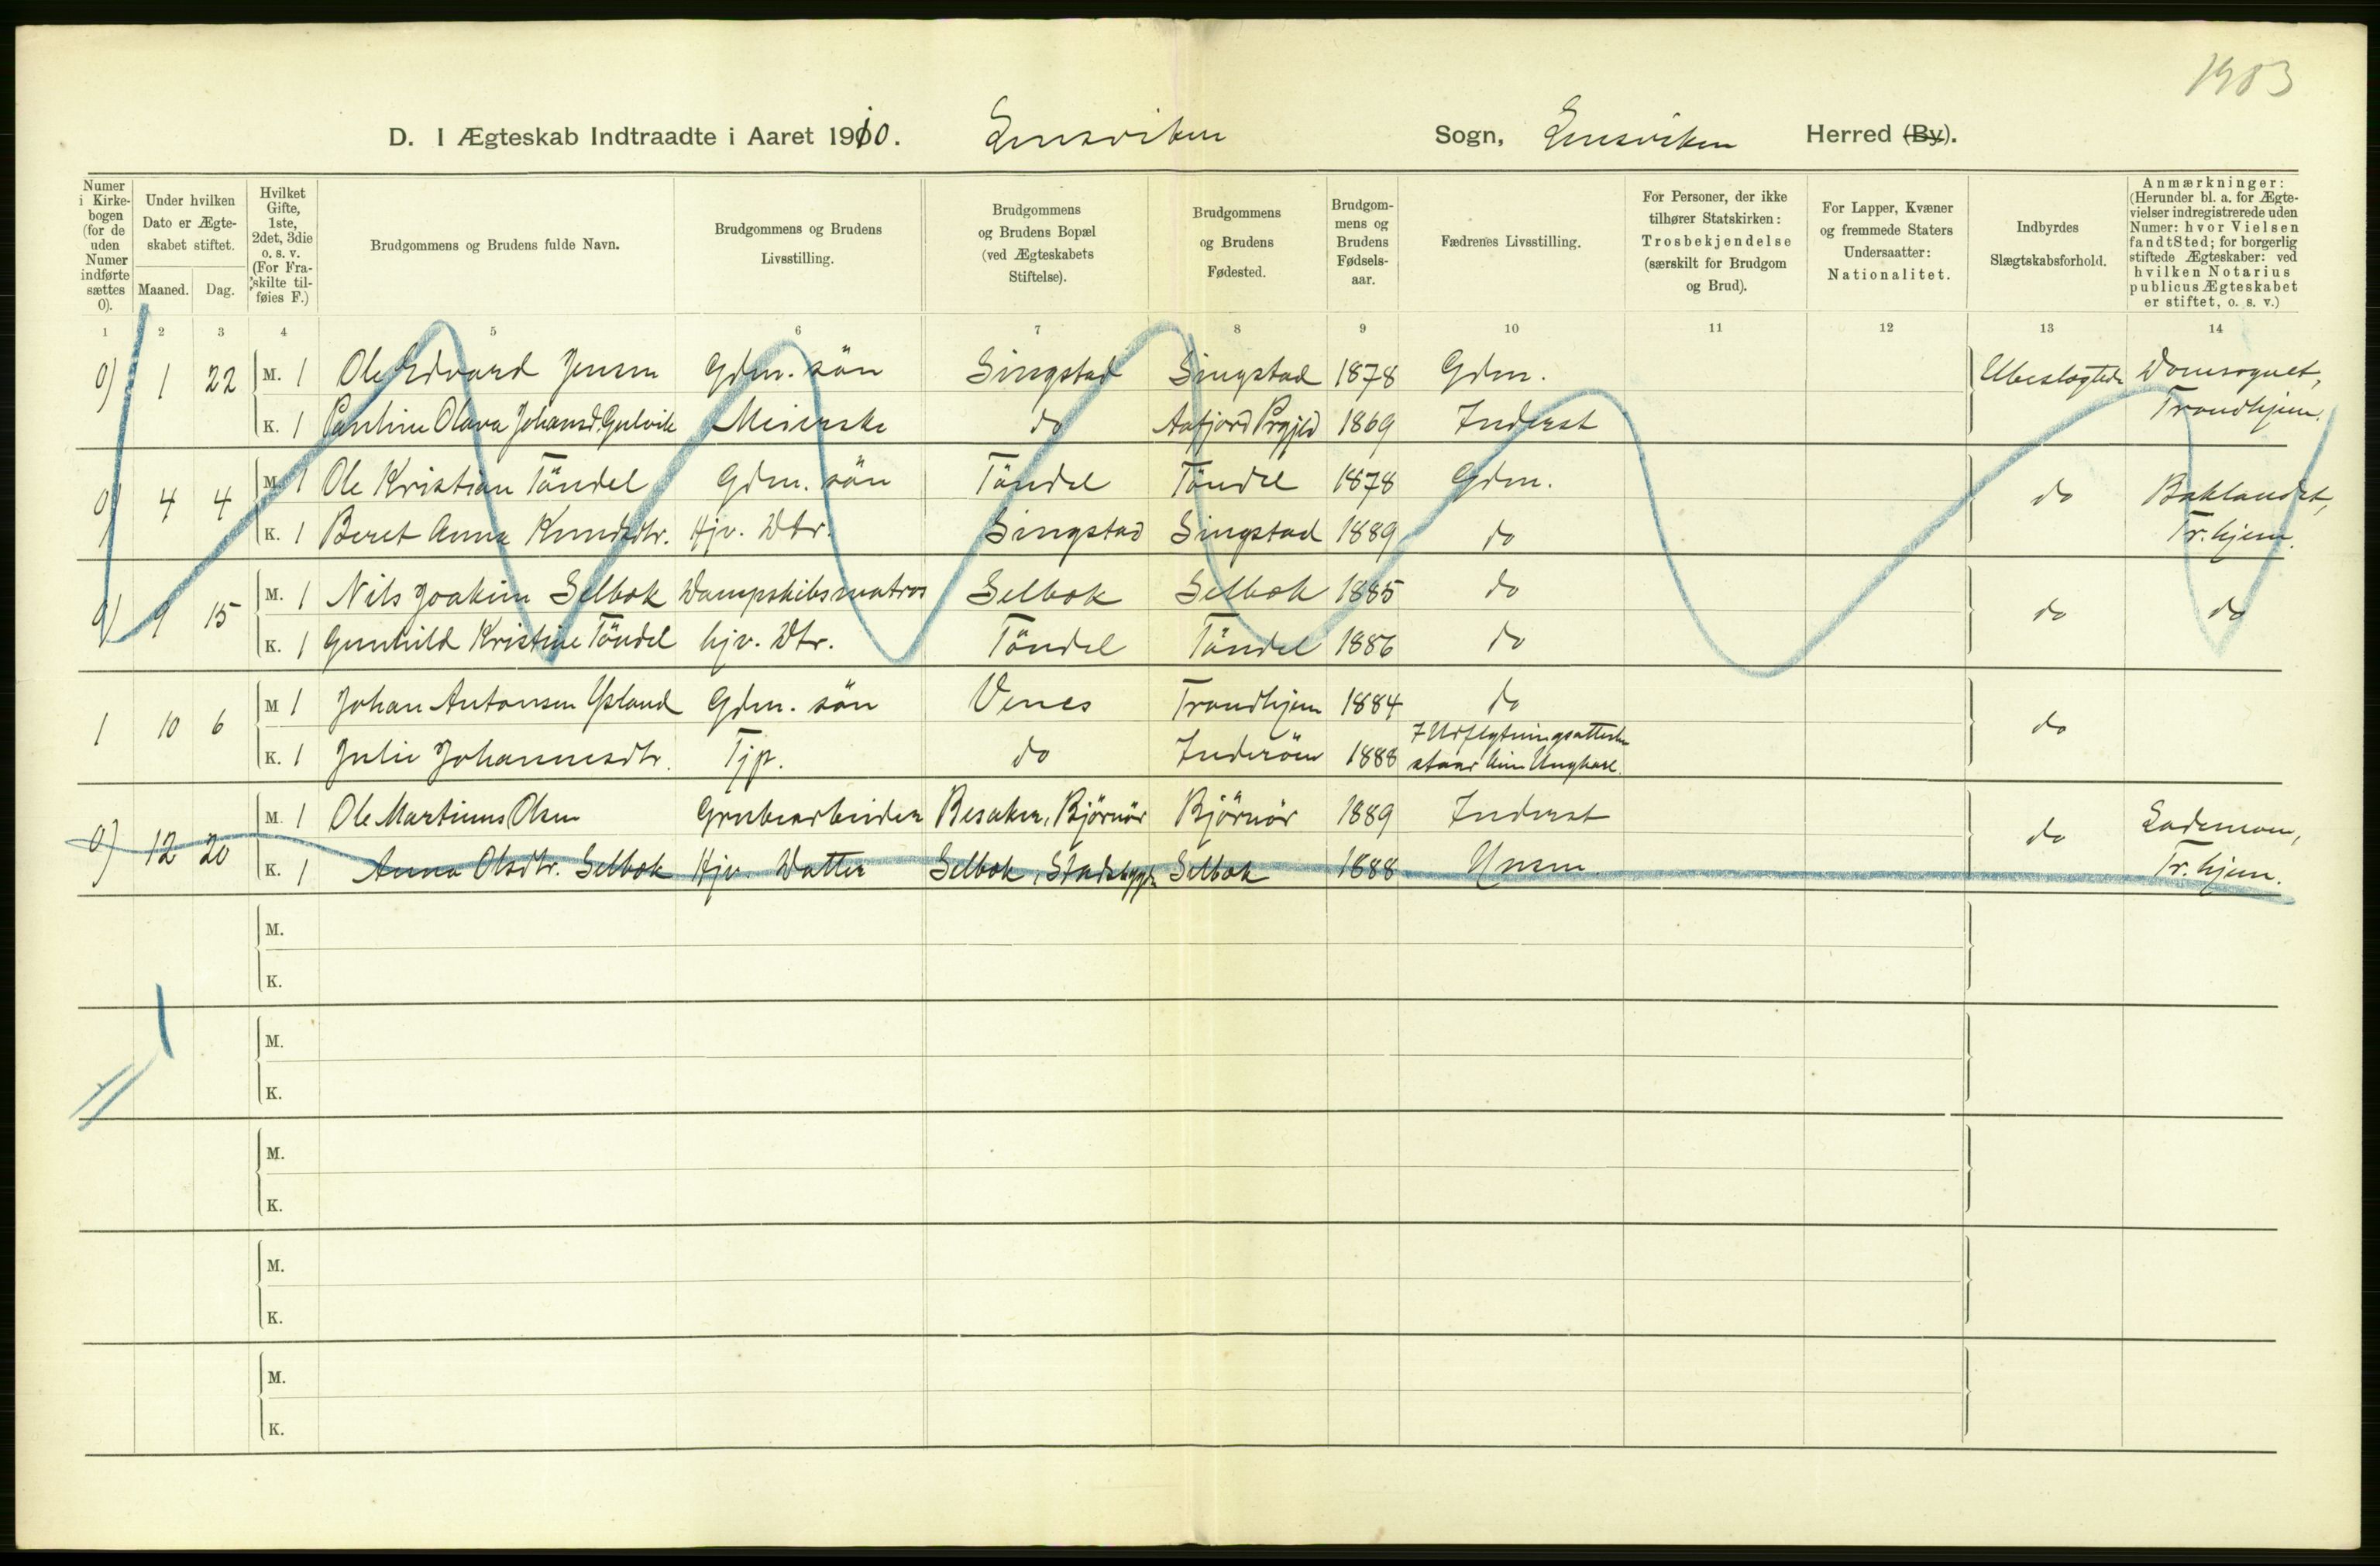 1903
D. I Ægteskab Indtraadte i Aaret 1910. Lensviken Sogn, Lensviken Herred (By).
Numer i Kirkebogen (for de uden Numer indførte sættes 0).
Under hvilken Dato er Ægteskabet stiftet.
Maaned. Dag.
Hvilket Gifte, 1ste, 2det, 3die o. s. v. (For Fraskilte tilføies F.)
Brudgommens og Brudens fulde Navn.
Brudgommens og Brudens Livsstilling.
Brudgommens og Brudens Bopæl (ved Ægteskabets Stiftelse).
Brudgommens og Brudens Fødested.
Brudgommens og Brudens Fødselsaar.
Fædrenes Livsstilling.
For Personer, der ikke tilhører Statskirken: Trosbekjendelse (særskilt for Brudgom og Brud).
For Lapper, Kvæner og fremmede Staters Undersaatter: Nationalitet.
Indbyrdes Slægtskabsforhold.
Anmærkninger: (Herunder bl. a. for Ægtevielser indregistrerede uden Numer: hvor Vielsen fandt Sted; for borgerlig stiftede Ægteskaber: ved hvilken Notarius publicus Ægteskabet er stiftet, o. s. v.)
1 2 3 4 5 6 7 8 9 10 11 12 13 14
0) 1 22 M. 1 Ole Edvard Jensen Gdm. sön Singstad Singstad 1878 Gdm. Ubeslægtede Domsognet,
K. 1 Pauline Olava Johansd. Gulvik Meierske do Aafjord Prgjld 1869 Inderst Trondhjem.
0) 4 4 M. 1 Ole Kristian Töndel Gdm. sön Töndel Töndel 1878 Gdm. do Baklandet,
K. 1 Beret Anna Knudsdtr. Hjv. Dtr. Singstad Singstad 1889 do Tr.hjem.
0) 9 15 M. 1 Nils Joakim Selbok Dampskibsmatros Selbok Selbok 1885 do do do
K. 1 Gunhild Kristine Töndel hjv. Dtr. Töndel Töndel 1886 do
1 10 6 M 1 Johan Antonsen Ysland Gdm. sön Venes Trondhjem 1884 do do
K. 1 Julie Johannesdtr. Tjp. do Inderöen 1888 I Udflytningsattesten
staar kun Ungkarl.
0) 12 20 M. 1 Ole Martinus Olsen Grubearbeider Besaker, Björnör Björnör 1889 Inderst do Lademoen,
K. 1 Anna Olsdtr. Selbok Hjv. Datter Selbok, Stadsbygden Selbok 1888 Husm. Tr.hjem.
M.
K.
1
M.
K.
M.
K.
M.
K.
M.
K.